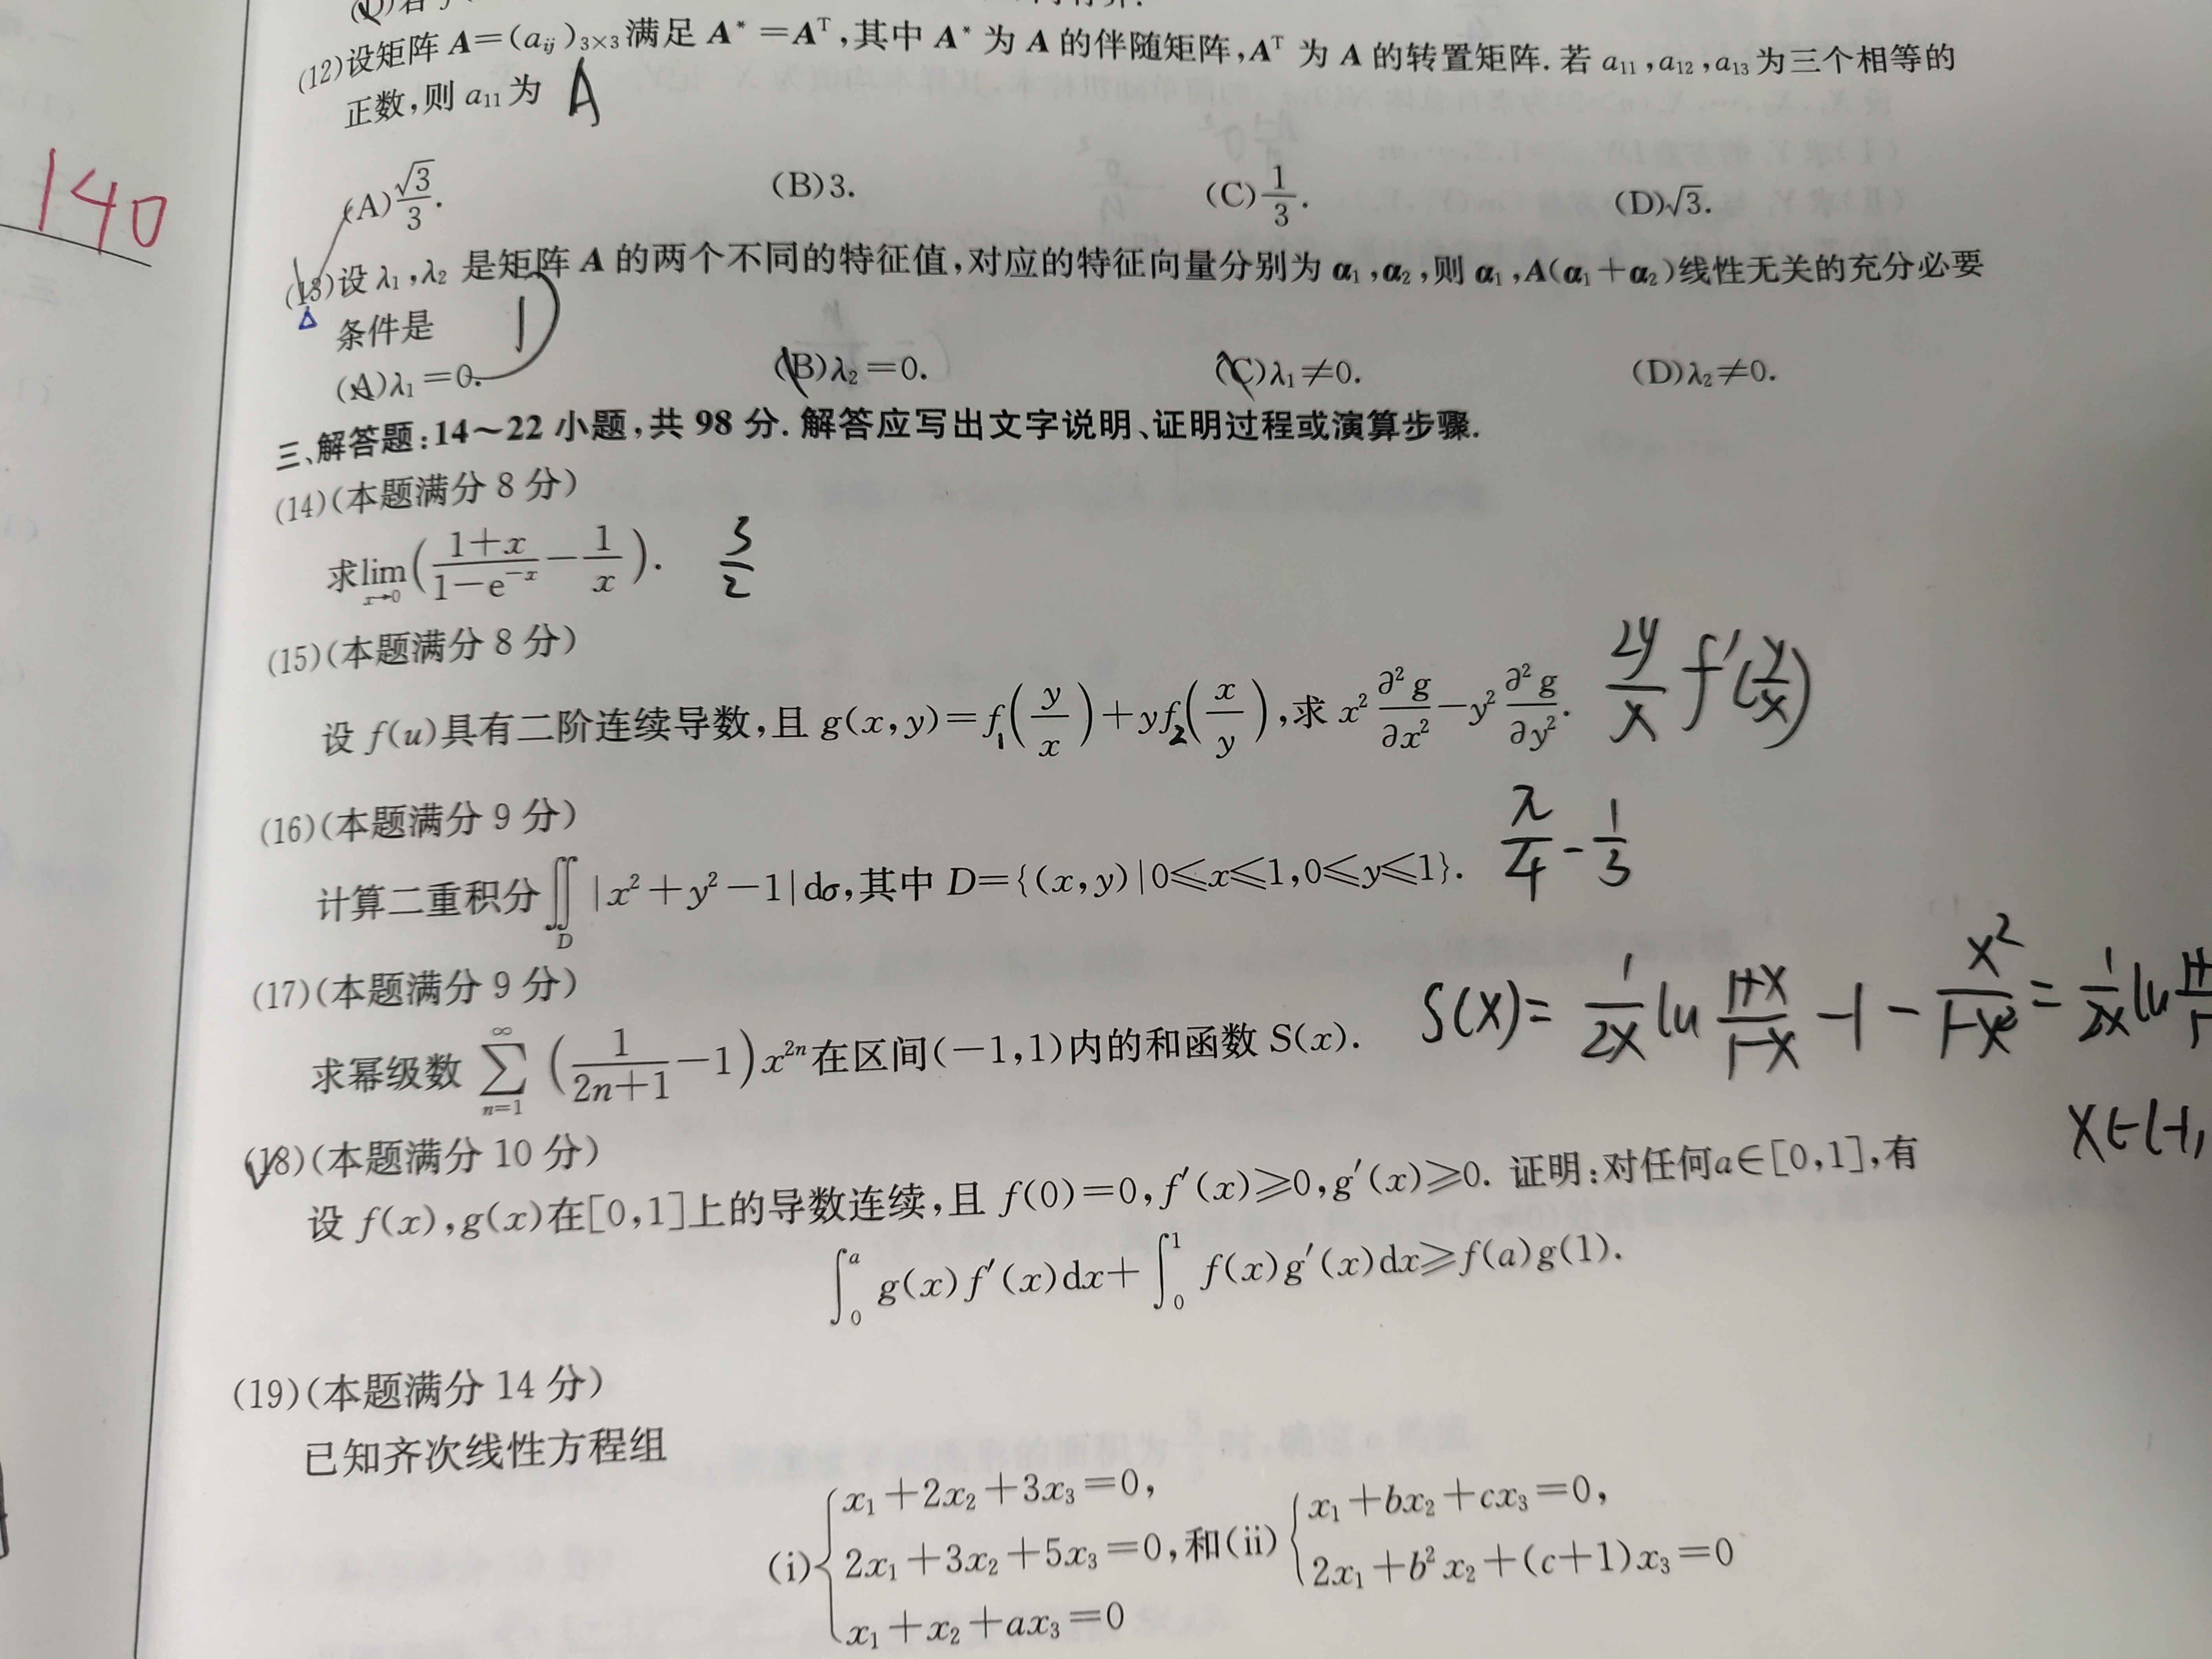 (12)设矩阵 A=(aᵢⱼ)₃ₓ₃满足 A*=Aᵀ,其中 A* 为 A 的伴随矩阵,Aᵀ 为 A 的转置矩阵.若 a₁₁,a₁₂,a₁₃为三个相等的
正数,则 a₁₁为 A
140
(A)√3/3. (B)3. (C)1/3. (D)√3.
(13)设 λ₁,λ₂ 是矩阵 A 的两个不同的特征值,对应的特征向量分别为 α₁,α₂,则 α₁,A(α₁+α₂)线性无关的充分必要
条件是 D
(A)λ₁=0. (B)λ₂=0. (C)λ₁≠0. (D)λ₂≠0.
三、解答题:14～22 小题,共 98 分.解答应写出文字说明、证明过程或演算步骤.
(14)(本题满分 8 分)
求lim x→0 ((1+x)/(1-e⁻ˣ) - 1/x). 3/2
(15)(本题满分 8 分)
设 f(u)具有二阶连续导数,且 g(x,y)=f₁(y/x)+yf₂(x/y),求 x² ∂²g/∂x² - y² ∂²g/∂y². 2y/x f′(y/x)
(16)(本题满分 9 分)
计算二重积分∬_D |x²+y²-1|dσ,其中 D={(x,y)|0≤x≤1,0≤y≤1}. π/4 - 1/3
(17)(本题满分 9 分)
求幂级数 ∑_{n=1}^∞ (1/(2n+1) - 1)x²ⁿ在区间(-1,1)内的和函数 S(x). S(x)= 1/2x ln (1+x)/(1-x) -1- x²/(1-x²) = 1/2x ln
x∈(-1,
(18)(本题满分 10 分)
设 f(x),g(x)在[0,1]上的导数连续,且 f(0)=0,f′(x)≥0,g′(x)≥0. 证明:对任何a∈[0,1],有
∫₀ᵃ g(x)f′(x)dx+∫₀¹ f(x)g′(x)dx≥f(a)g(1).
(19)(本题满分 14 分)
已知齐次线性方程组
x₁+2x₂+3x₃=0, x₁+bx₂+cx₃=0,
(i) 2x₁+3x₂+5x₃=0,和(ii) 2x₁+b²x₂+(c+1)x₃=0
x₁+x₂+ax₃=0